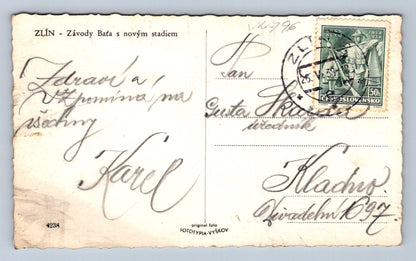 ZLÍN - Závody Baťa s novým stadiem
Zdraví a
vzpomíná na
všechny
Karel
4234
original foto
FOTOTYPIA-VYŠKOV
ZLÍN
50h
ČESKOSLOVENSKO
Pan
Gusta
úředník
Kladno.
Divadelní 1697.